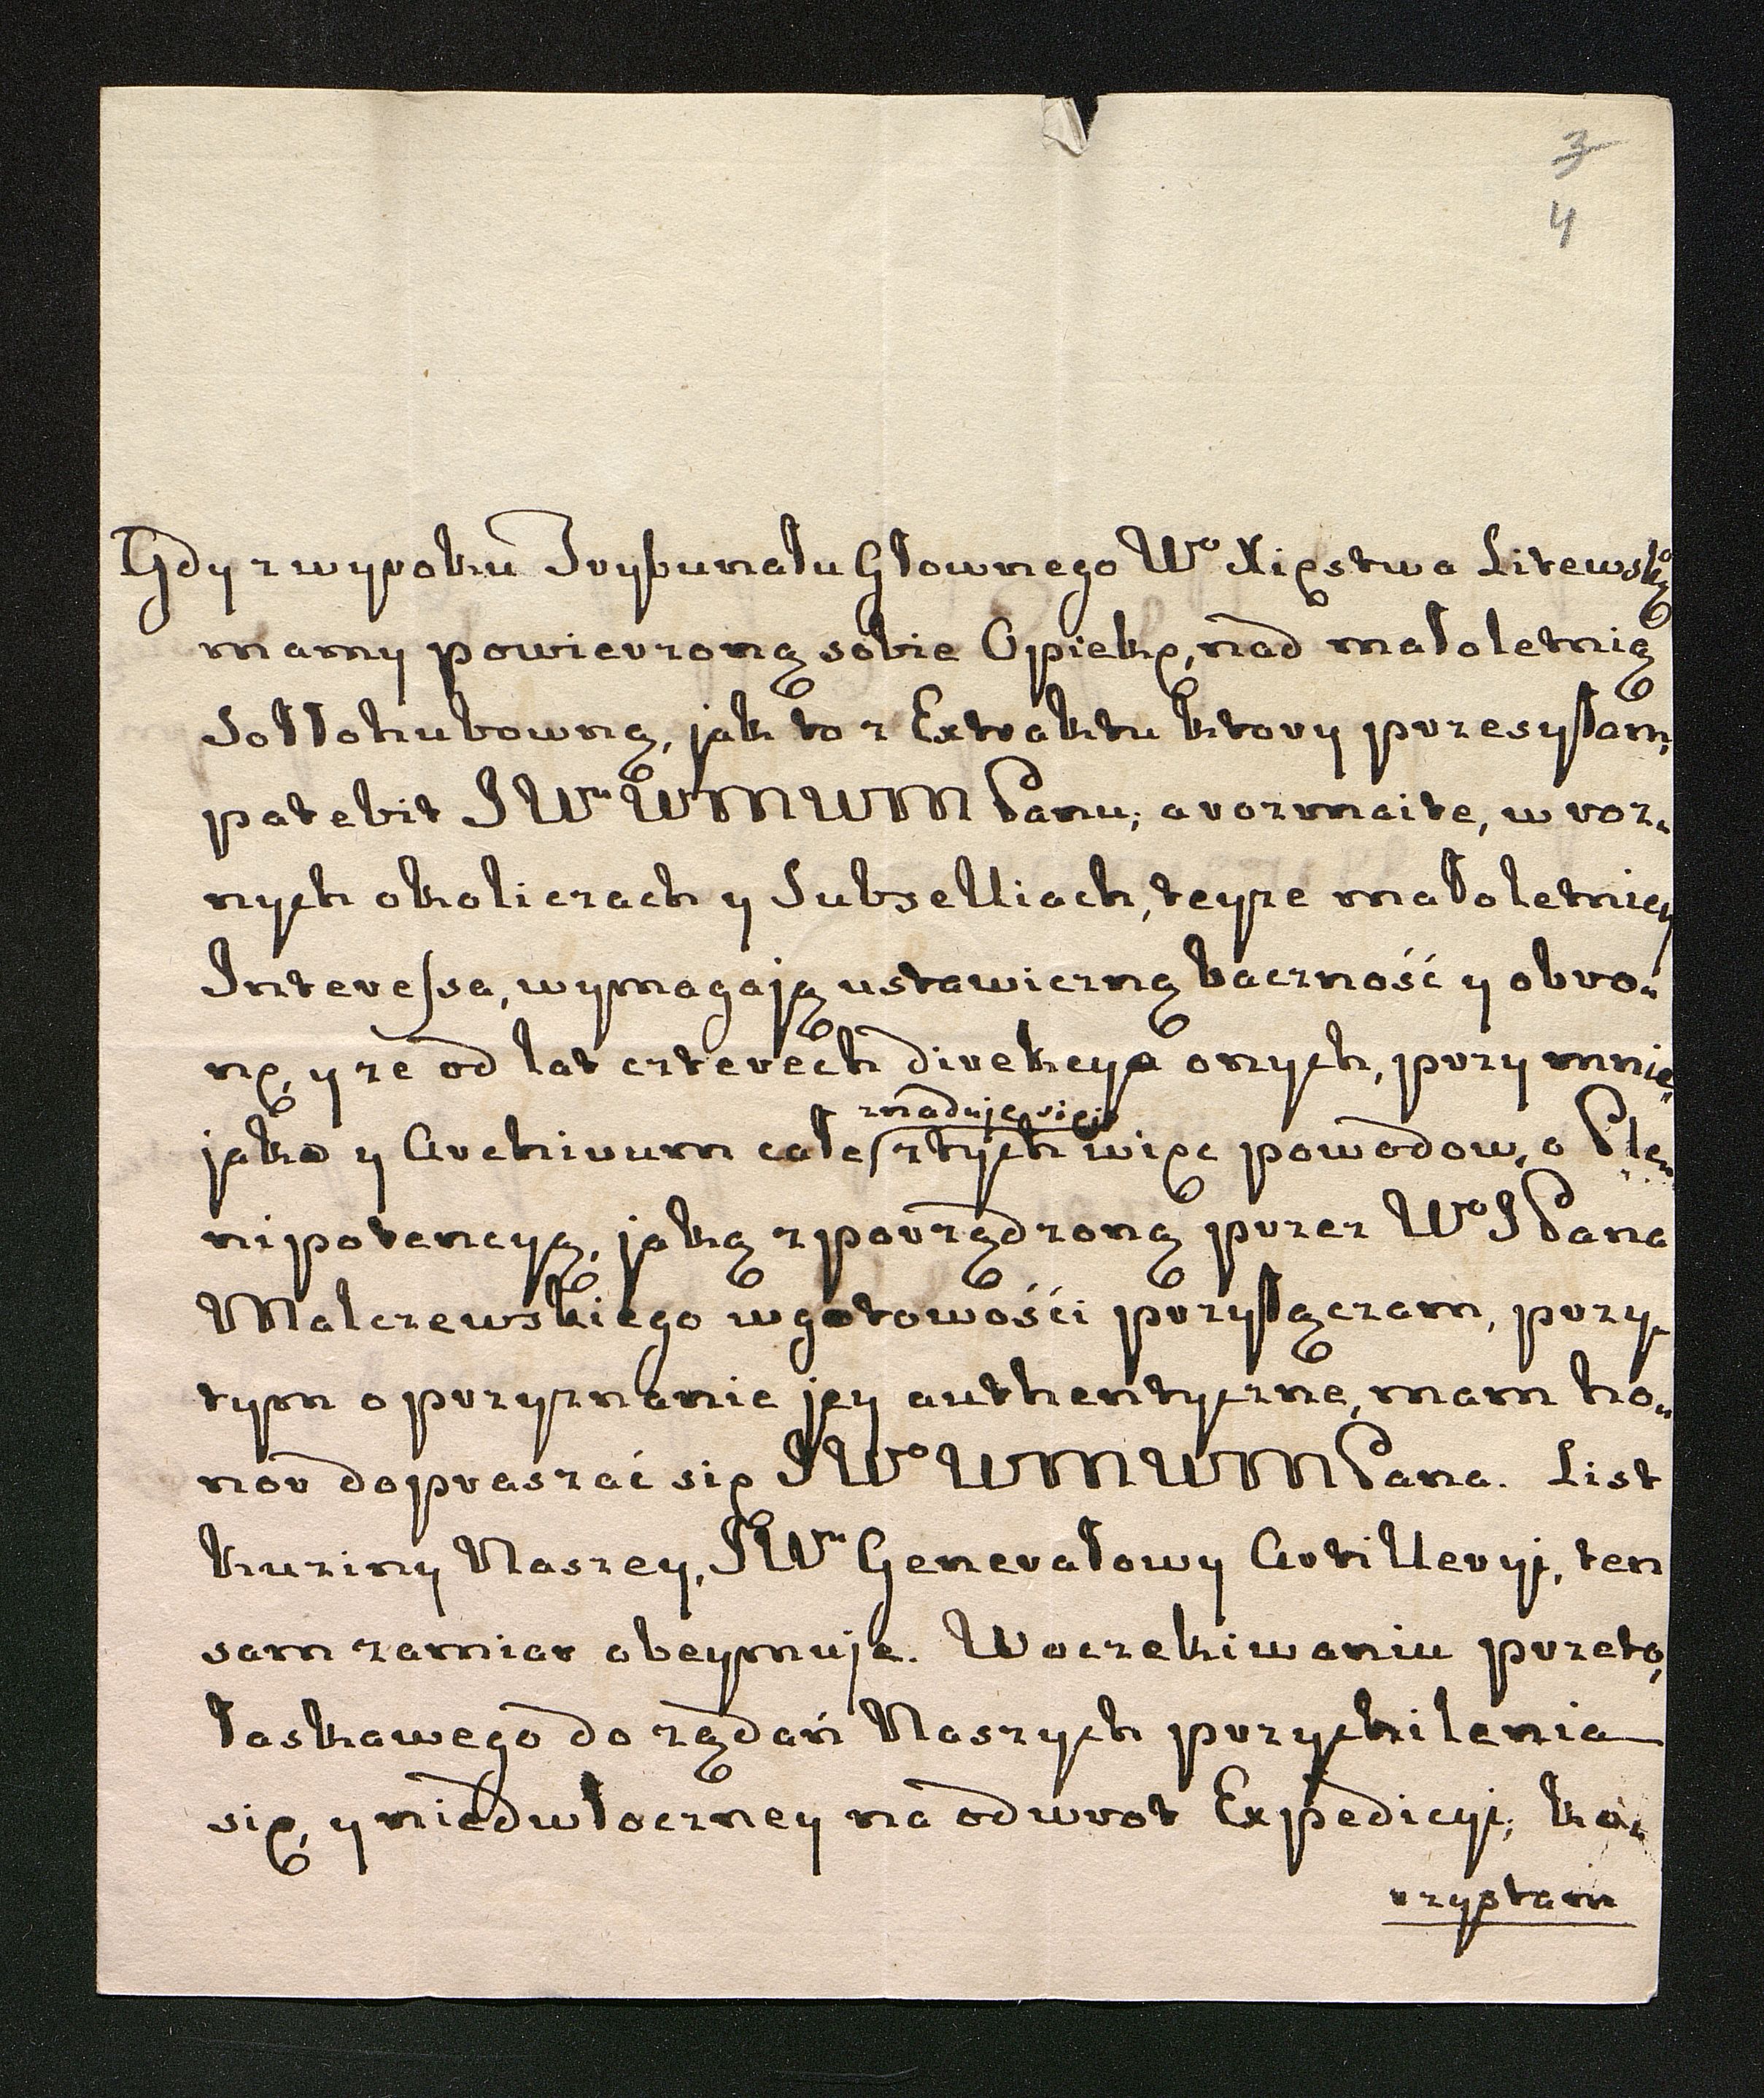 3
4
Gdy z wyroku Trybunału Głownego Wº Xięstwa Litewskº
mamy powierzoną sobie Opiekę, nad małoletnią
Sołłohubowną, jak to z Extraktu ktory przesyłam,
patebit JWu WMWM Panu; a rozmaite, w roz„
nych okoliczach y Subselliach, teyze małoletniey
Interessa, wymagają ustawiczną baczność y obro„
nę, y ze od lat czterech direkcya onych, przy mnie„
znaduje się;
jako y Archivum całe z tych więc powodow, o Ple„
nipotencyą, jaką zporządzoną przez Wº JPana
Malczewskiego w gotowości przyłączam, przy
tym o przyznanie jey authentyczne, mam ho„
nor dopraszać się JWº WMWMPana. List
kuziny Naszey, JWu Generałowy Artilleryi, ten
sam zamiar obeymuje. W oczekiwaniu przeto,
łaskawego do ządań Naszych przychilenia
się, y niedwłoczney na odwrot Expedicyi; ko„
rzystam